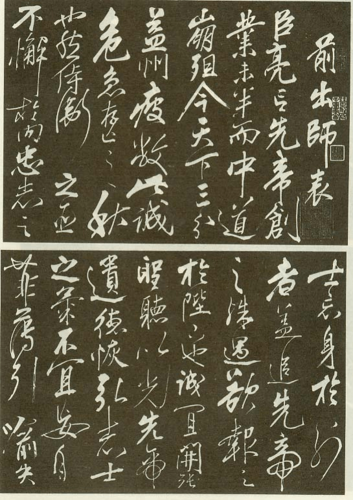 前出師表
臣亮言先帝創
業未半而中道
崩殂今天下三分
益州疲敝此誠
危急存亡之秋
也然侍衛之臣
不懈於內忠志之
士忘身於外
者蓋追先帝
之殊遇欲報之
於陛下也誠宜開張
聖聽以光先帝
遺德恢弘志士
之氣不宜妄自
菲薄引喻失